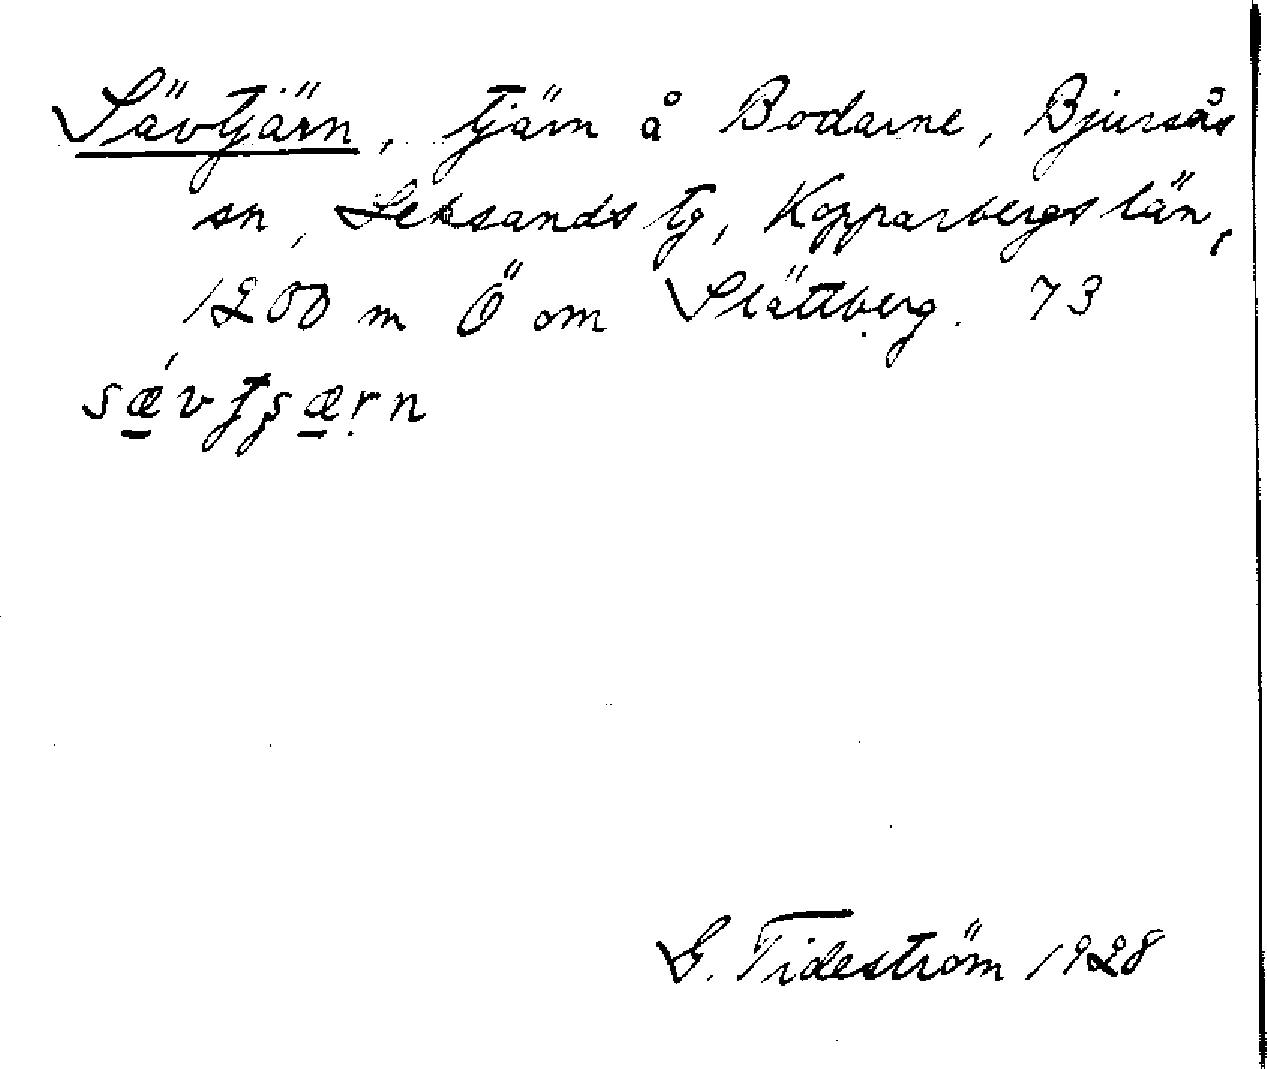 Sävtjärn, tjärn å Bodarne, Bjursås
sn, Leksands tg, Kopparbergs län,
1200 m Ö om Slättberg. 73
sǽvtʂærn
G. Tideström 1928